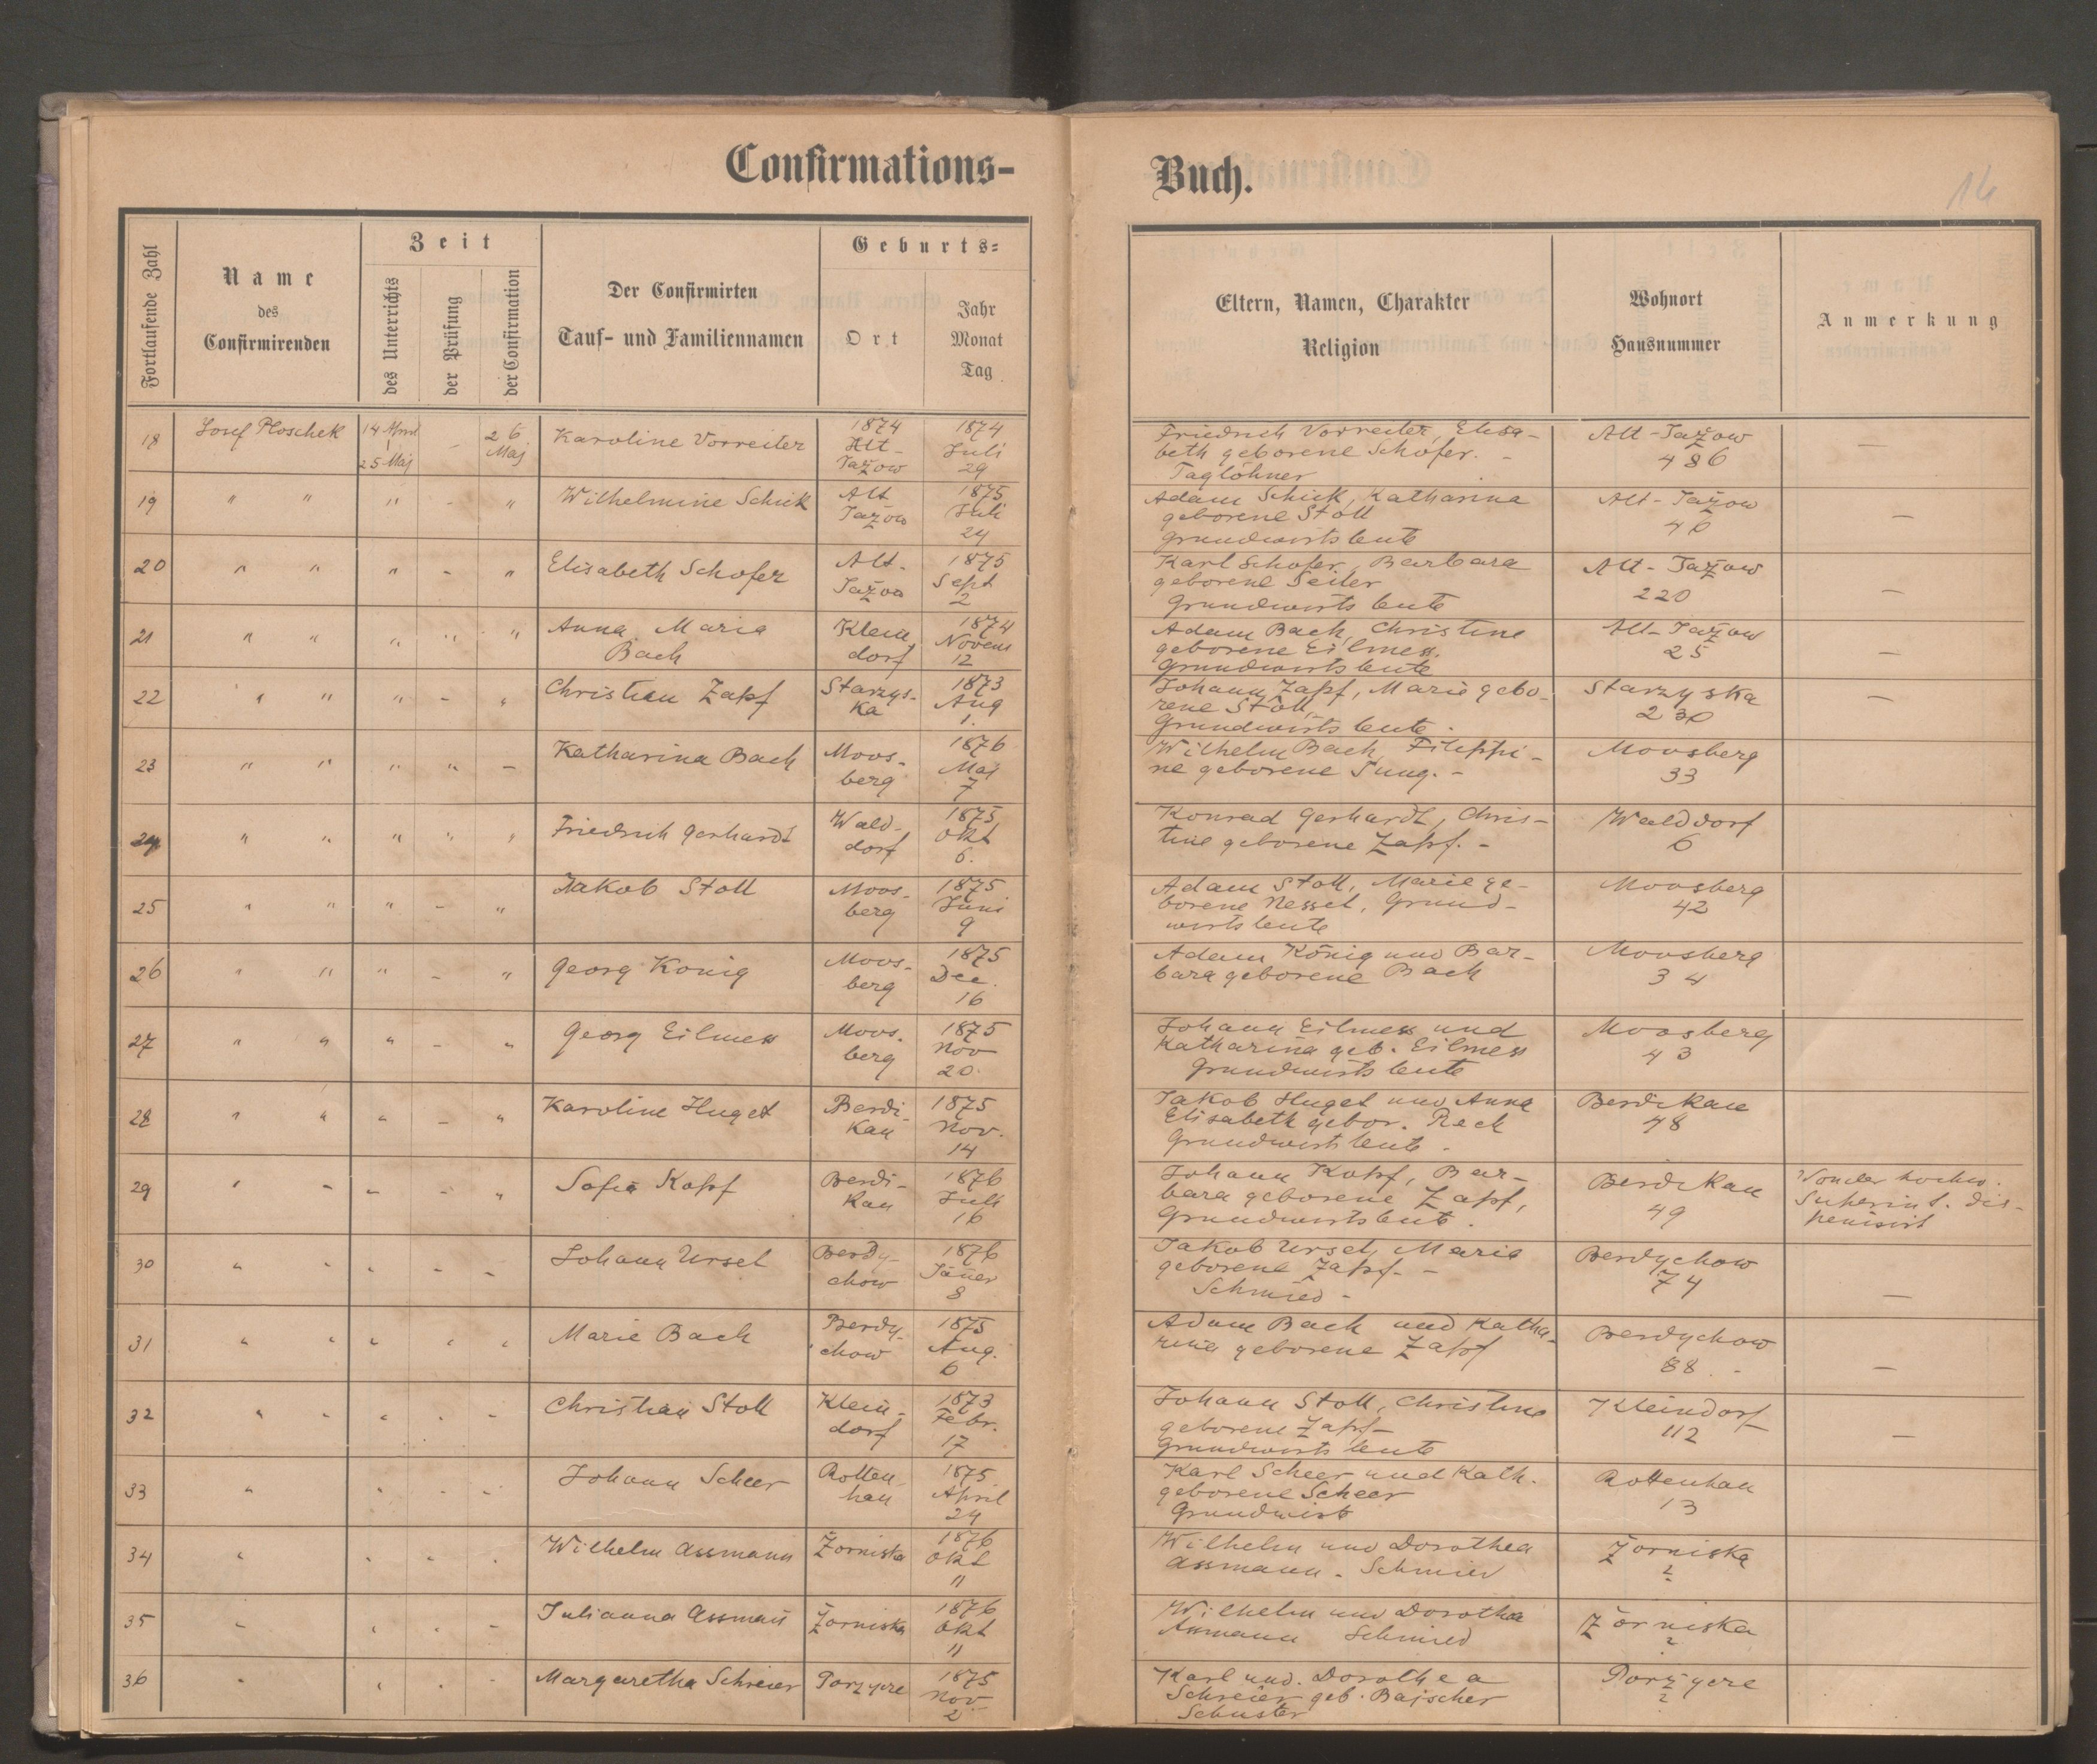 Confirmations-
Buch.
14
Fortlaufende Zahl
Name
des
Confirmirenden
Zeit
des Unterrichts
der Prüfung
der Confirmation
Der Confirmirten
Tauf- und Familiennamen
Geburts-
Ort
Jahr
Monat
Tag
Eltern, Namen, Charakter
Religion
Wohnort
Hausnummer
Anmerkung
18 Josef Ploschek 25 Maj - 26 Maj Karoline Vorreiter 1874 Alt- Jažow 1874 Juli 29
Friedrich Vorreiter, Elisa-
beth geborene Schofer. -
Taglöhner
Alt-Jažow
486
—
19 " " " - " Wilhelmine Schick Alt Jažow 1875 Juli 24
Adam Schick, Katharina
geborene Stoll
Grundwirtsleute
Alt-Jažow
40
—
20 " " " - " Elisabeth Schofer Alt- Jažow 1875 Sept 2
Karl Schofer, Barbara
geborene Seiler
Grundwirtsleute
Alt-Jažow
220
—
21 " " " " " Anna Maria Bach Klein dorf 1874 Novem 12
Adam Bach, Christine
geborene Eilmess.
Grundwirtsleute
Alt-Jažow
25
—
22 " " " - " Christian Zapf Starzys- ka 1873 Aug 1.
Johann Zapf, Marie gebo-
rene Stoll,
Grundwirtsleute.
Starzyska
230
—
23 " " " " - Katharina Bach Moos- berg 1876 Maj 7
Wilhelm Bach, Filippi-
ne geborene Jung. -
Moosberg
33
24 " " " " " Friedrich Gerhardt Wald- dorf 1875 Okt 6.
Konrad Gerhardt, Chris-
tine geborene Zapf. -
Walddorf
6
25 " " " - " Jakob Stoll Moos- berg 1875 Juni 9
Adam Stoll, Marie ge-
borene Nessel, Grund-
wirtsleute
Moosberg
42
26 " " " - " Georg König Moos- berg 1875 Dec. 16
Adam König und Bar-
bara geborene Bach
Moosberg
34
27 " " " - " Georg Eilmess Moos- berg 1875 Nov 20.
Johann Eilmess und
Katharina geb. Eilmess
Grundwirtsleute
Moosberg
43
28 " " " - " Karoline Huget Berdi- kau 1875 Nov. 14
Jakob Huget und Anna
Elisabeth gebor. Rech
Grundwirtsleute -
Berdikau
48
29 " " " - " Sofia Kopf Berdi- kau 1876 Juli 16
Johann Kopf, Bar-
bara geborene Zapf,
Grundwirtsleute.
Berdikau
49
Von der hochw.
Superint. dis-
pensirt
30 " " " - - Johann Ursel Berdy- chow 1876 Jäner 8
Jakob Ursel, Marie
geborene Zapf. -
Schmied -
Berdychow
74
—
31 " " " " " Marie Bach Berdy- chow 1875 Aug. 6
Adam Bach und Katha-
rina geborene Zapf
Berdychow
88. -
—
32 " " " - - Christian Stoll Klein- dorf 1873 Febr. 17
Johann Stoll, Christine
geborene Zapf -
Grundwirtsleute
Kleindorf
112
—
33 " " " " Johann Scheer Rotten- han 1875 April 24
Karl Scheer und Kath.
geborene Scheer
Grundwirt
Rottenhan
13
34 " " " " Wilhelm Assmann Žorniska 1876 Okt 11
Wilhelm und Dorothea
Assmann - Schmied
Žorniska
?
35 " " " - Julianna Assmann Žorniska 1876 Okt 11
Wilhelm und Dorothea
Assmann Schmied
Žorniska
?
36 " " " - Margaretha Schreier Porzycze 1875 Nov. 2
Karl und Dorothea
Schreier geb. Bajscher
Schuster
Porzycze
?